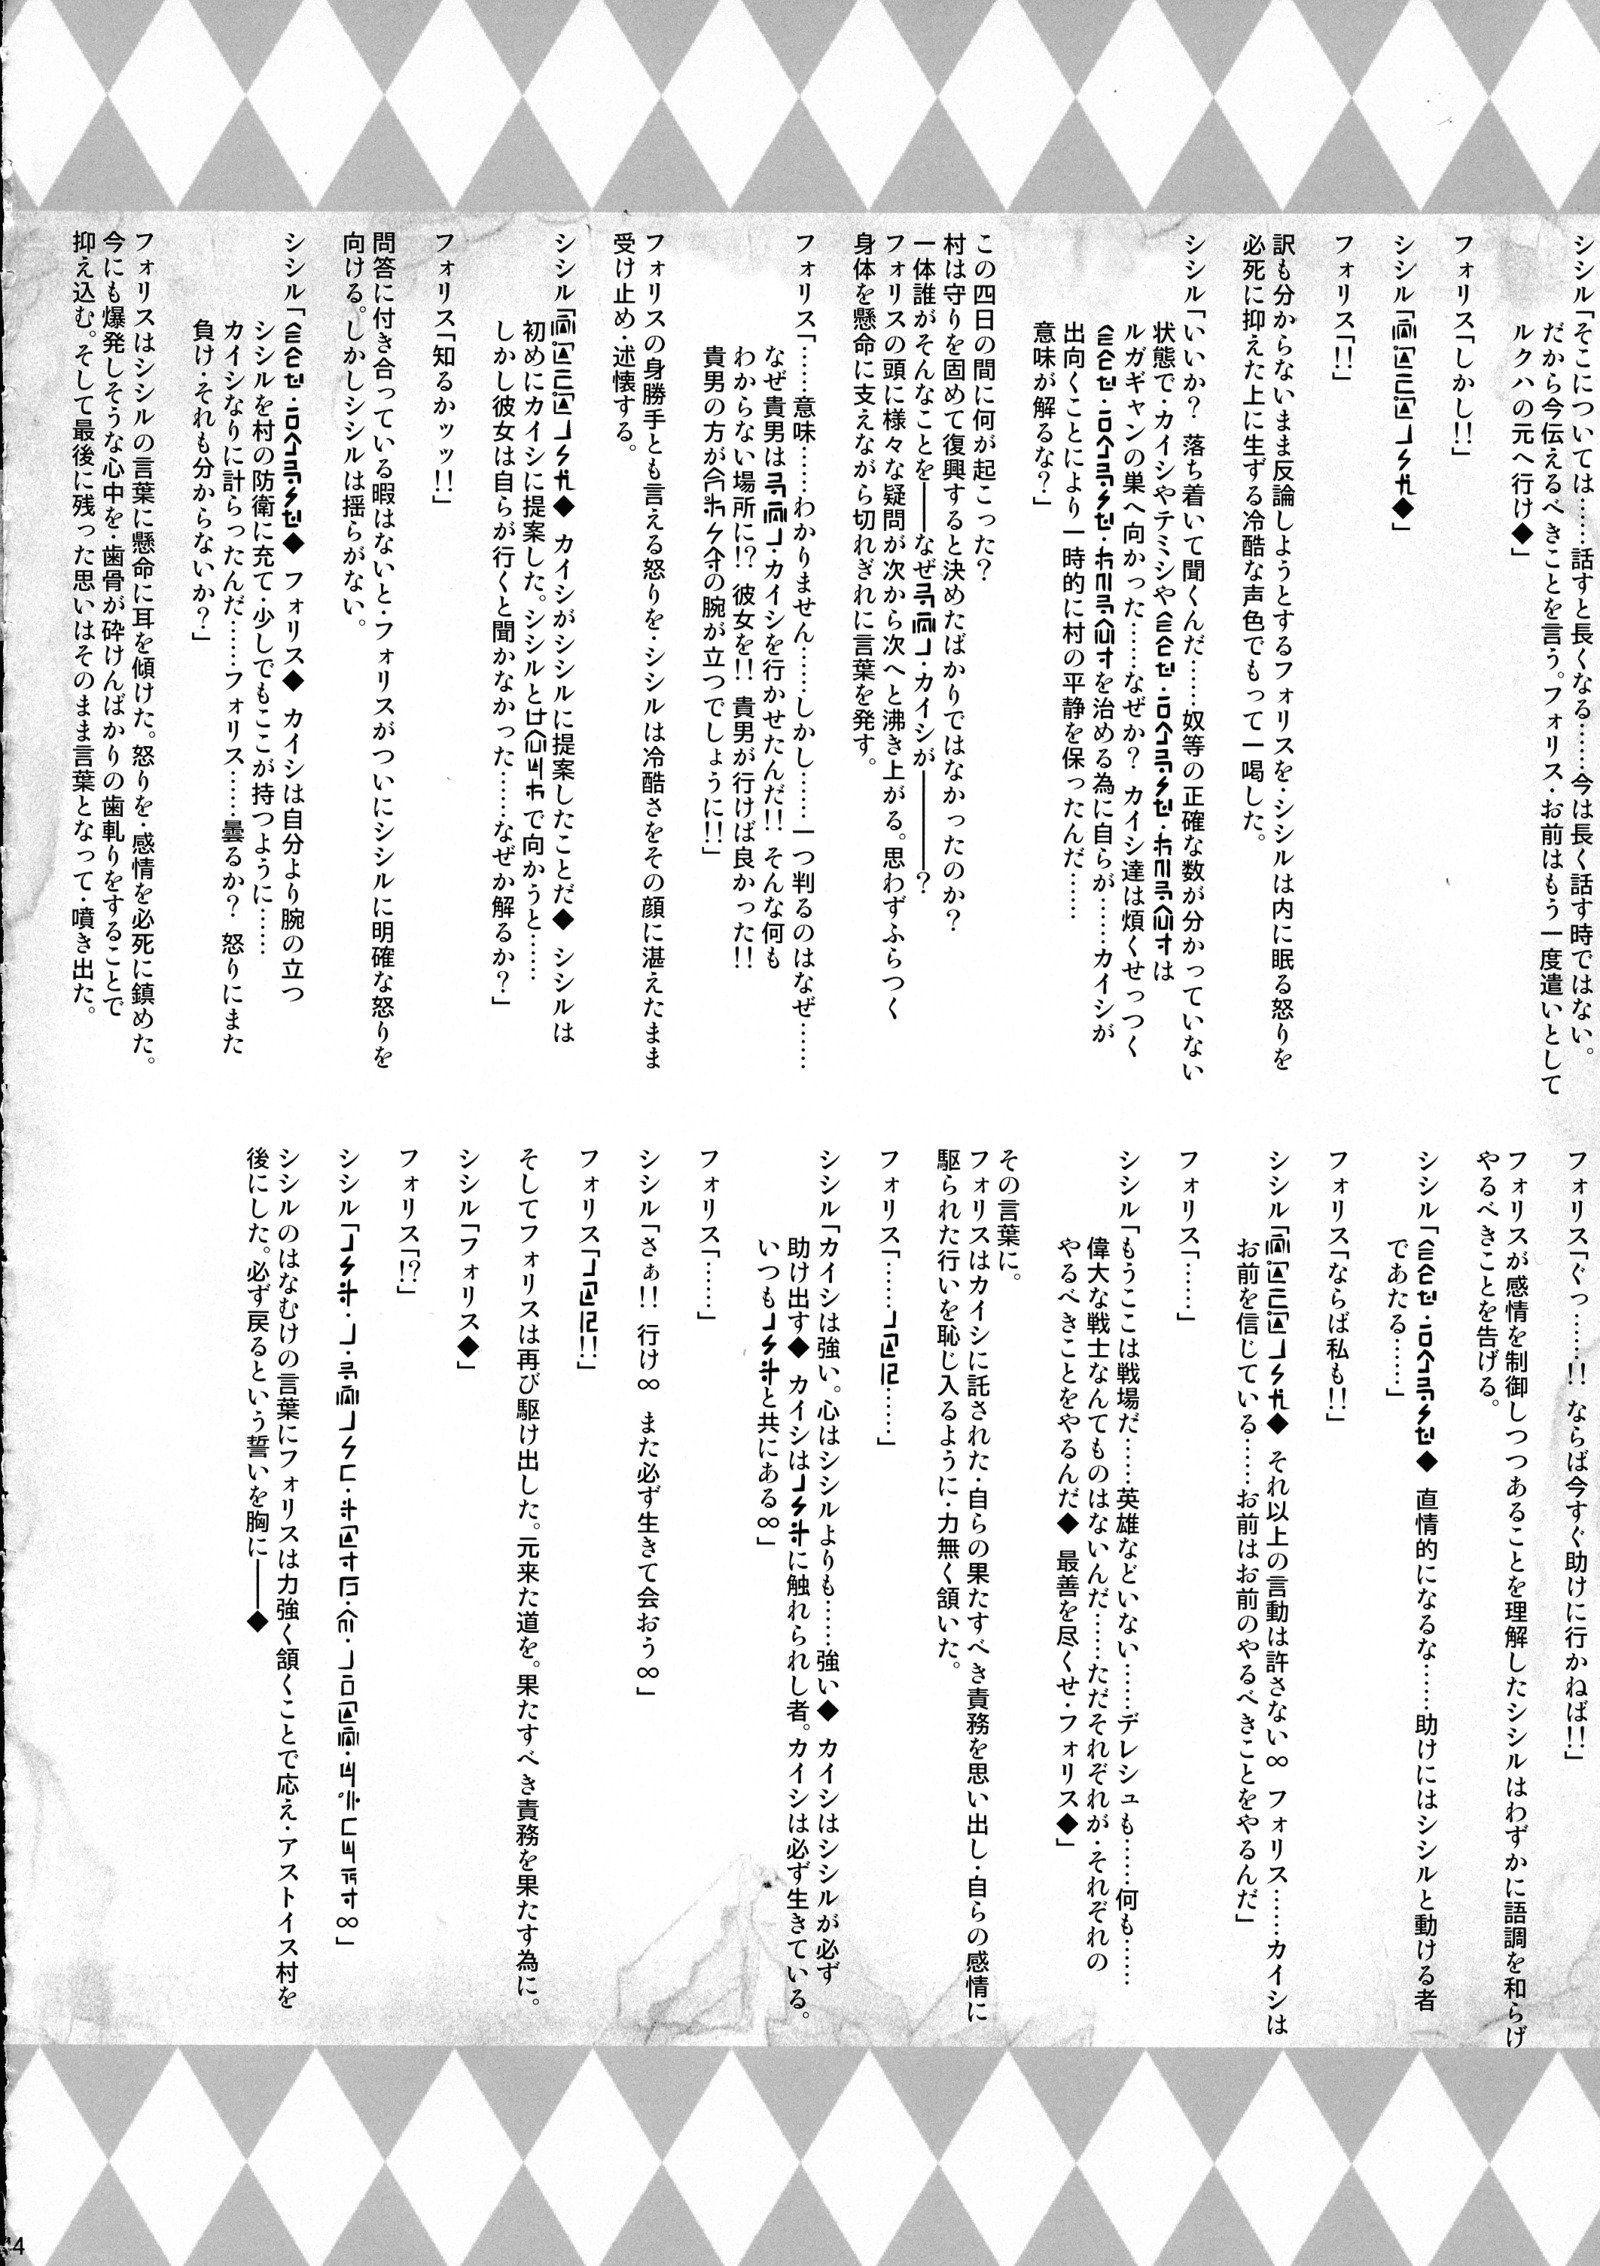 シシル「そこについては……話すと長くなる……今は長く話す時ではない。
だから今伝えるべきことを言う。フォリス・お前はもう一度遣いとして
ルクハの元へ行け◆」
フォリス「しかし!!
シシル「◆」
フォリス「!!」
訳も分からないまま反論しようとするフォリスを・シシルは内に眠る怒りを
必死に抑えた上に生ずる冷酷な声色でもって一喝した。
シシル「いいか? 落ち着いて聞くんだ……奴等の正確な数が分かっていない
状態で・カイシやテミシや・・は
ルガギャンの巣へ向かった……なぜか? カイシ達は煩くせっつく
・・を治める為に自らが……カイシが
出向くことにより一時的に村の平静を保ったんだ……
意味が解るな?」
この四日の間に何が起こった?
村は守りを固めて復興すると決めたばかりではなかったのか?
一体誰がそんなことを――なぜ・カイシが―――?
フォリスの頭に様々な疑問が次から次へと沸き上がる。思わずふらつく
身体を懸命に支えながら切れぎれに言葉を発す。
フォリス「……意味……わかりません……しかし……一つ判るのはなぜ……
なぜ貴男は・カイシを行かせたんだ!! そんな何も
わからない場所に!? 彼女を!! 貴男が行けば良かった!!
貴男の方がの腕が立つでしょうに!!」
フォリスの身勝手とも言える怒りを・シシルは冷酷さをその顔に湛えたまま
受け止め・述懐する。
シシル「◆ カイシがシシルに提案したことだ◆ シシルは
初めにカイシに提案した。シシルとで向かうと……
しかし彼女は自らが行くと聞かなかった……なぜか解るか?」
フォリス「知るかッッ!!」
問答に付き合っている暇はないと・フォリスがついにシシルに明確な怒りを
向ける。しかしシシルは揺らがない。
シシル「・◆ フォリス◆ カイシは自分より腕の立つ
シシルを村の防衛に充て・少しでもここが持つように……
カイシなりに計らったんだ……フォリス……曇るか? 怒りにまた
負け・それも分からないか?」
フォリスはシシルの言葉に懸命に耳を傾けた。怒りを・感情を必死に鎮めた。
今にも爆発しそうな心中を・歯骨が砕けんばかりの歯軋りをすることで
抑え込む。そして最後に残った思いはそのまま言葉となって・噴き出た。
フォリス「ぐっ……!! ならば今すぐ助けに行かねば!!」
フォリスが感情を制御しつつあることを理解したシシルはわずかに語調を和らげ
やるべきことを告げる。
シシル「・◆ 直情的になるな……助けにはシシルと動ける者
であたる……」
フォリス「ならば私も!!」
シシル「◆ それ以上の言動は許さない∞ フォリス……カイシは
お前を信じている……お前はお前のやるべきことをやるんだ」
フォリス「……」
シシル「もうここは戦場だ……英雄などいない……デレシュも……何も……
偉大な戦士なんてものはないんだ……ただそれぞれが・それぞれの
やるべきことをやるんだ◆ 最善を尽くせ・フォリス◆」
その言葉に。
フォリスはカイシに託された・自らの果たすべき責務を思い出し・自らの感情に
駆られた行いを恥じ入るように・力無く頷いた。
フォリス「……」
シシル「カイシは強い。心はシシルよりも……強い◆ カイシはシシルが必ず
助け出す◆ カイシはに触れられし者。カイシは必ず生きている。
いつもと共にある∞」
フォリス「……」
シシル「さぁ!! 行け∞ また必ず生きて会おう∞」
フォリス「!!」
そしてフォリスは再び駆け出した。元来た道を。果たすべき責務を果たす為に。
シシル「フォリス◆」
フォリス「!?」
シシル「∞」
シシルのはなむけの言葉にフォリスは力強く頷くことで応え・アストイス村を
後にした。必ず戻るという誓いを胸に――◆